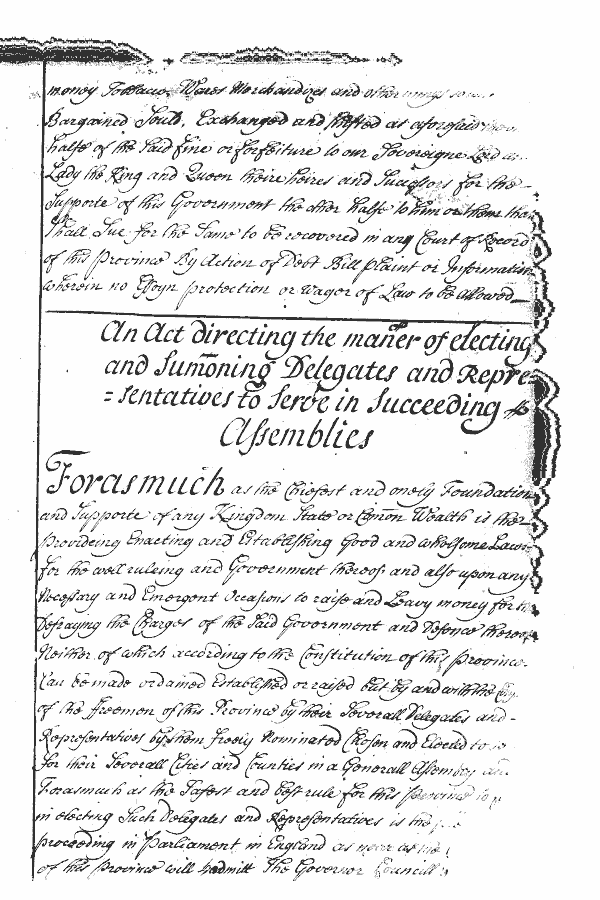 money Tobbacco Wares Merchandizes and other things
Bargained Sould, Exchanged and shifted as aforesaid
halfe of the said fine or forfeiture to our Sovereigne Lord
Lady the King and Queen theire heires and Successors for the
Supporte of this Government the other halfe to him or them that
Shall Sue for the Same to be recovered in any Court of Record
of this Province By Action of Debt Bill plaint or Information
wherein no Essoyn protection or wager of Law to be Allowed
An Act directing the maner of electing
and Sumoning Delegates and Repre=
=sentatives to Serve in Succeeding
Assemblies
Forasmuch as the Chiefest and onely Foundation
and Supporte of any Kingdom State or Comon Wealth is the
Provideing Enacting and Establishing Good and wholsome Laws
for the well ruleing and Government thereof and also upon any
Necessary and Emergent Occasions to raise and Leavy money for
Defraying the Charges of the Said Government and Defence thereof
Neither of which according to the Constitution of this Province
Can be made ordained Established or raised but by and with the
of the ffreemen of this Province by their Severall Delegates and
Representatives by them freely Nominated Chosen and Elected to
for their Severall Cities and Counties in a Generall Assembly
Forasmuch as the Safest and best rule for this Province
in electing Such Delegates and Representatives is the
proceeding in Parliament in England as near as
of this Province will admitt The Governor Councill